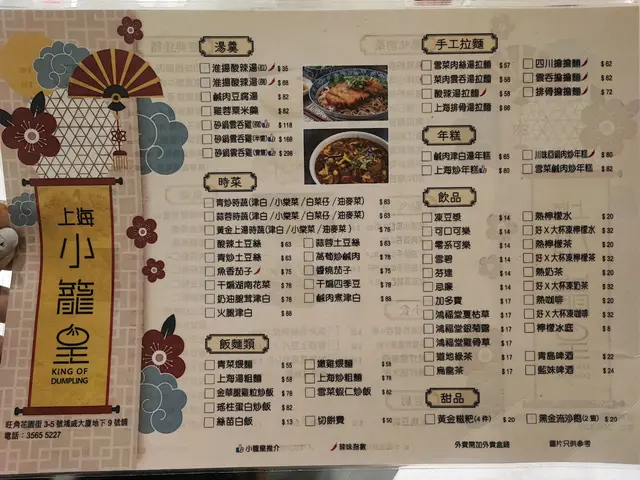 上海
小
籠
皇
KING OF
DUMPLING
旺角花園街 3-5 號鴻威大廈地下 9 號舖
電話：3565 5227
湯羹
淮揚酸辣湯 $ 35
淮揚酸辣湯 $ 68
鹹肉豆腐湯 $ 82
雞蓉粟米羹 $ 82
砂鍋雲吞雞 $ 118
砂鍋雲吞雞 $ 168
砂鍋雲吞雞 $ 298
時菜
青炒時蔬(津白 / 小棠菜 / 白菜仔 / 油麥菜) $ 63
蒜蓉時蔬(津白 / 小棠菜 / 白菜仔 / 油麥菜) $ 63
黃金上湯時蔬(津白 / 小棠菜 / 油麥菜) $ 76
酸辣土豆絲 $ 63
蒜蓉土豆絲 $ 63
青炒土豆絲 $ 63
萵筍炒鹹肉 $ 78
魚香茄子 $ 75
醬燒茄子 $ 75
干煸湖南花菜 $ 78
干煸四季豆 $ 78
奶油脆茸津白 $ 78
鹹肉煮津白 $ 78
火腿津白 $ 88
飯麵類
青菜煨麵 $ 55
嫩雞煨麵 $ 58
上海湯粗麵 $ 58
上海炒粗麵 $ 58
金華腿雞粒炒飯 $ 78
雲菜蝦仁炒飯 $ 82
瑤柱蛋白炒飯 $ 82
絲苗白飯 $ 13
切餅費 $ 50
手工拉麵
雲菜肉絲湯拉麵 $ 57
菜肉雲吞湯拉麵 $ 58
酸辣湯拉麵 $ 58
上海排骨湯拉麵 $ 66
四川擔擔麵 $ 52
雲吞擔擔麵 $ 62
排骨擔擔麵 $ 72
年糕
鹹肉津白湯年糕 $ 65
上海炒年糕 $ 80
川味回鍋肉炒年糕 $ 80
雪菜鹹肉炒年糕 $ 82
飲品
凍豆漿 $ 14
可口可樂 $ 14
零系可樂 $ 14
雪碧 $ 14
芬達 $ 14
忌廉 $ 14
加多寶 $ 17
鴻福堂夏枯草 $ 17
鴻福堂銀菊露 $ 17
鴻福堂雞骨草 $ 17
道地綠茶 $ 17
烏龍茶 $ 17
熱檸檬水 $ 20
好 X 大杯凍檸檬水 $ 32
熱檸檬茶 $ 20
好 X 大杯凍檸檬茶 $ 32
熱奶茶 $ 20
好 X 大杯凍奶茶 $ 32
熱咖啡 $ 20
好 X 大杯凍咖啡 $ 32
檸檬水底 $ 8
青島啤酒 $ 22
藍妹啤酒 $ 24
甜品
黃金糍粑(4 件) $ 20
黑金流沙飽(2 隻) $ 20
小籠皇推介
辣味指數
外賣需加外賣盒錢
圖片只供參考